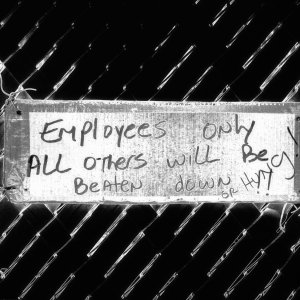 EMPloyees only
ALL others will Be
BEATEN down
OR Hurt